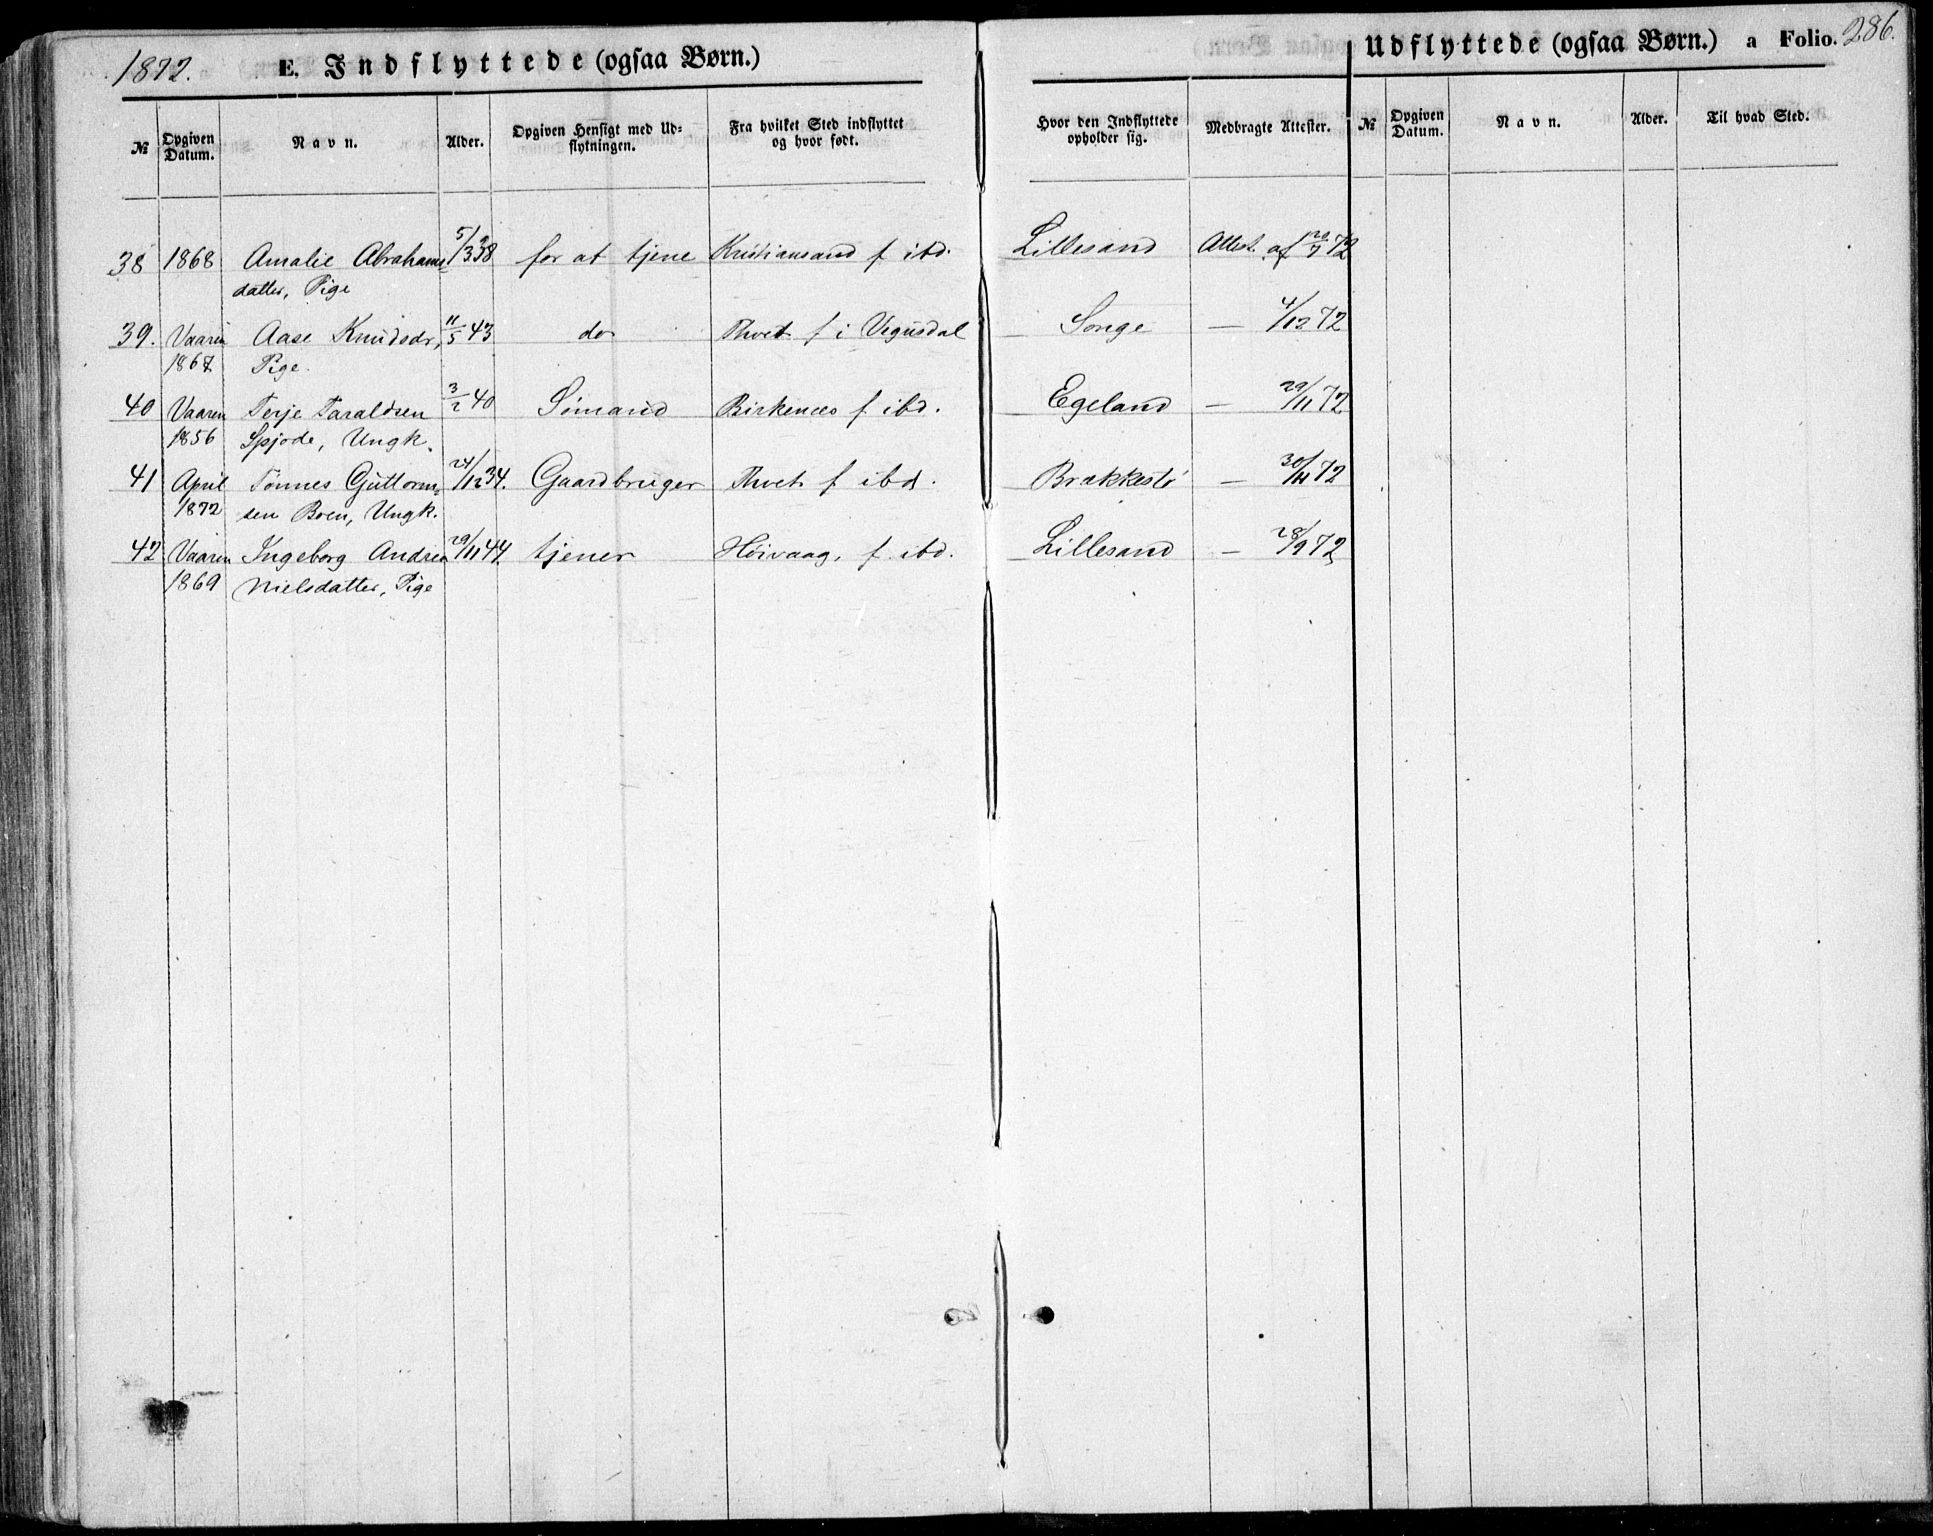 1872. E. Indflyttede (ogsaa Børn.)
Udflyttede (ogsaa Børn.) a Folio. 286.
№ Opgiven Datum. Navn. Alder. Opgiven Hensigt med Ud= Fra hvilket Sted indflyttet Hvor den Indflyttede Medbragte Attester. № Opgiven Datum. Navn. Alder. Til hvad Sted.
flytningen. og hvor født. opholder sig.
38 1868 Amalie Abrahams 5/3 38 for at tjene Kristiansand f ibd. Lillesand Attest af 20/7 72
datter, Pige
39. Vaaren Aase Knudsdr, 11/5 43 do Thvet f i Vegusdal Songe — 4/12 72
1867 Pige.
40 Vaaren Terje Taraldsen 3/2 40 Sømand Birkenes f ibd. Egeland — 29/11 72
1856 Spjode, Ungk.
41 April Tønnes Guttorm= 24/12 34. Gaardbruger Thvet f ibd. Brækkestø — 30/11 72
1872 sen Boen, Ungk.
42 Vaaren Ingeborg Andrea 29/11 44. tjener Høivaag, f ibd. Lillesand — 28/9 72
1869 Nielsdatter, Pige